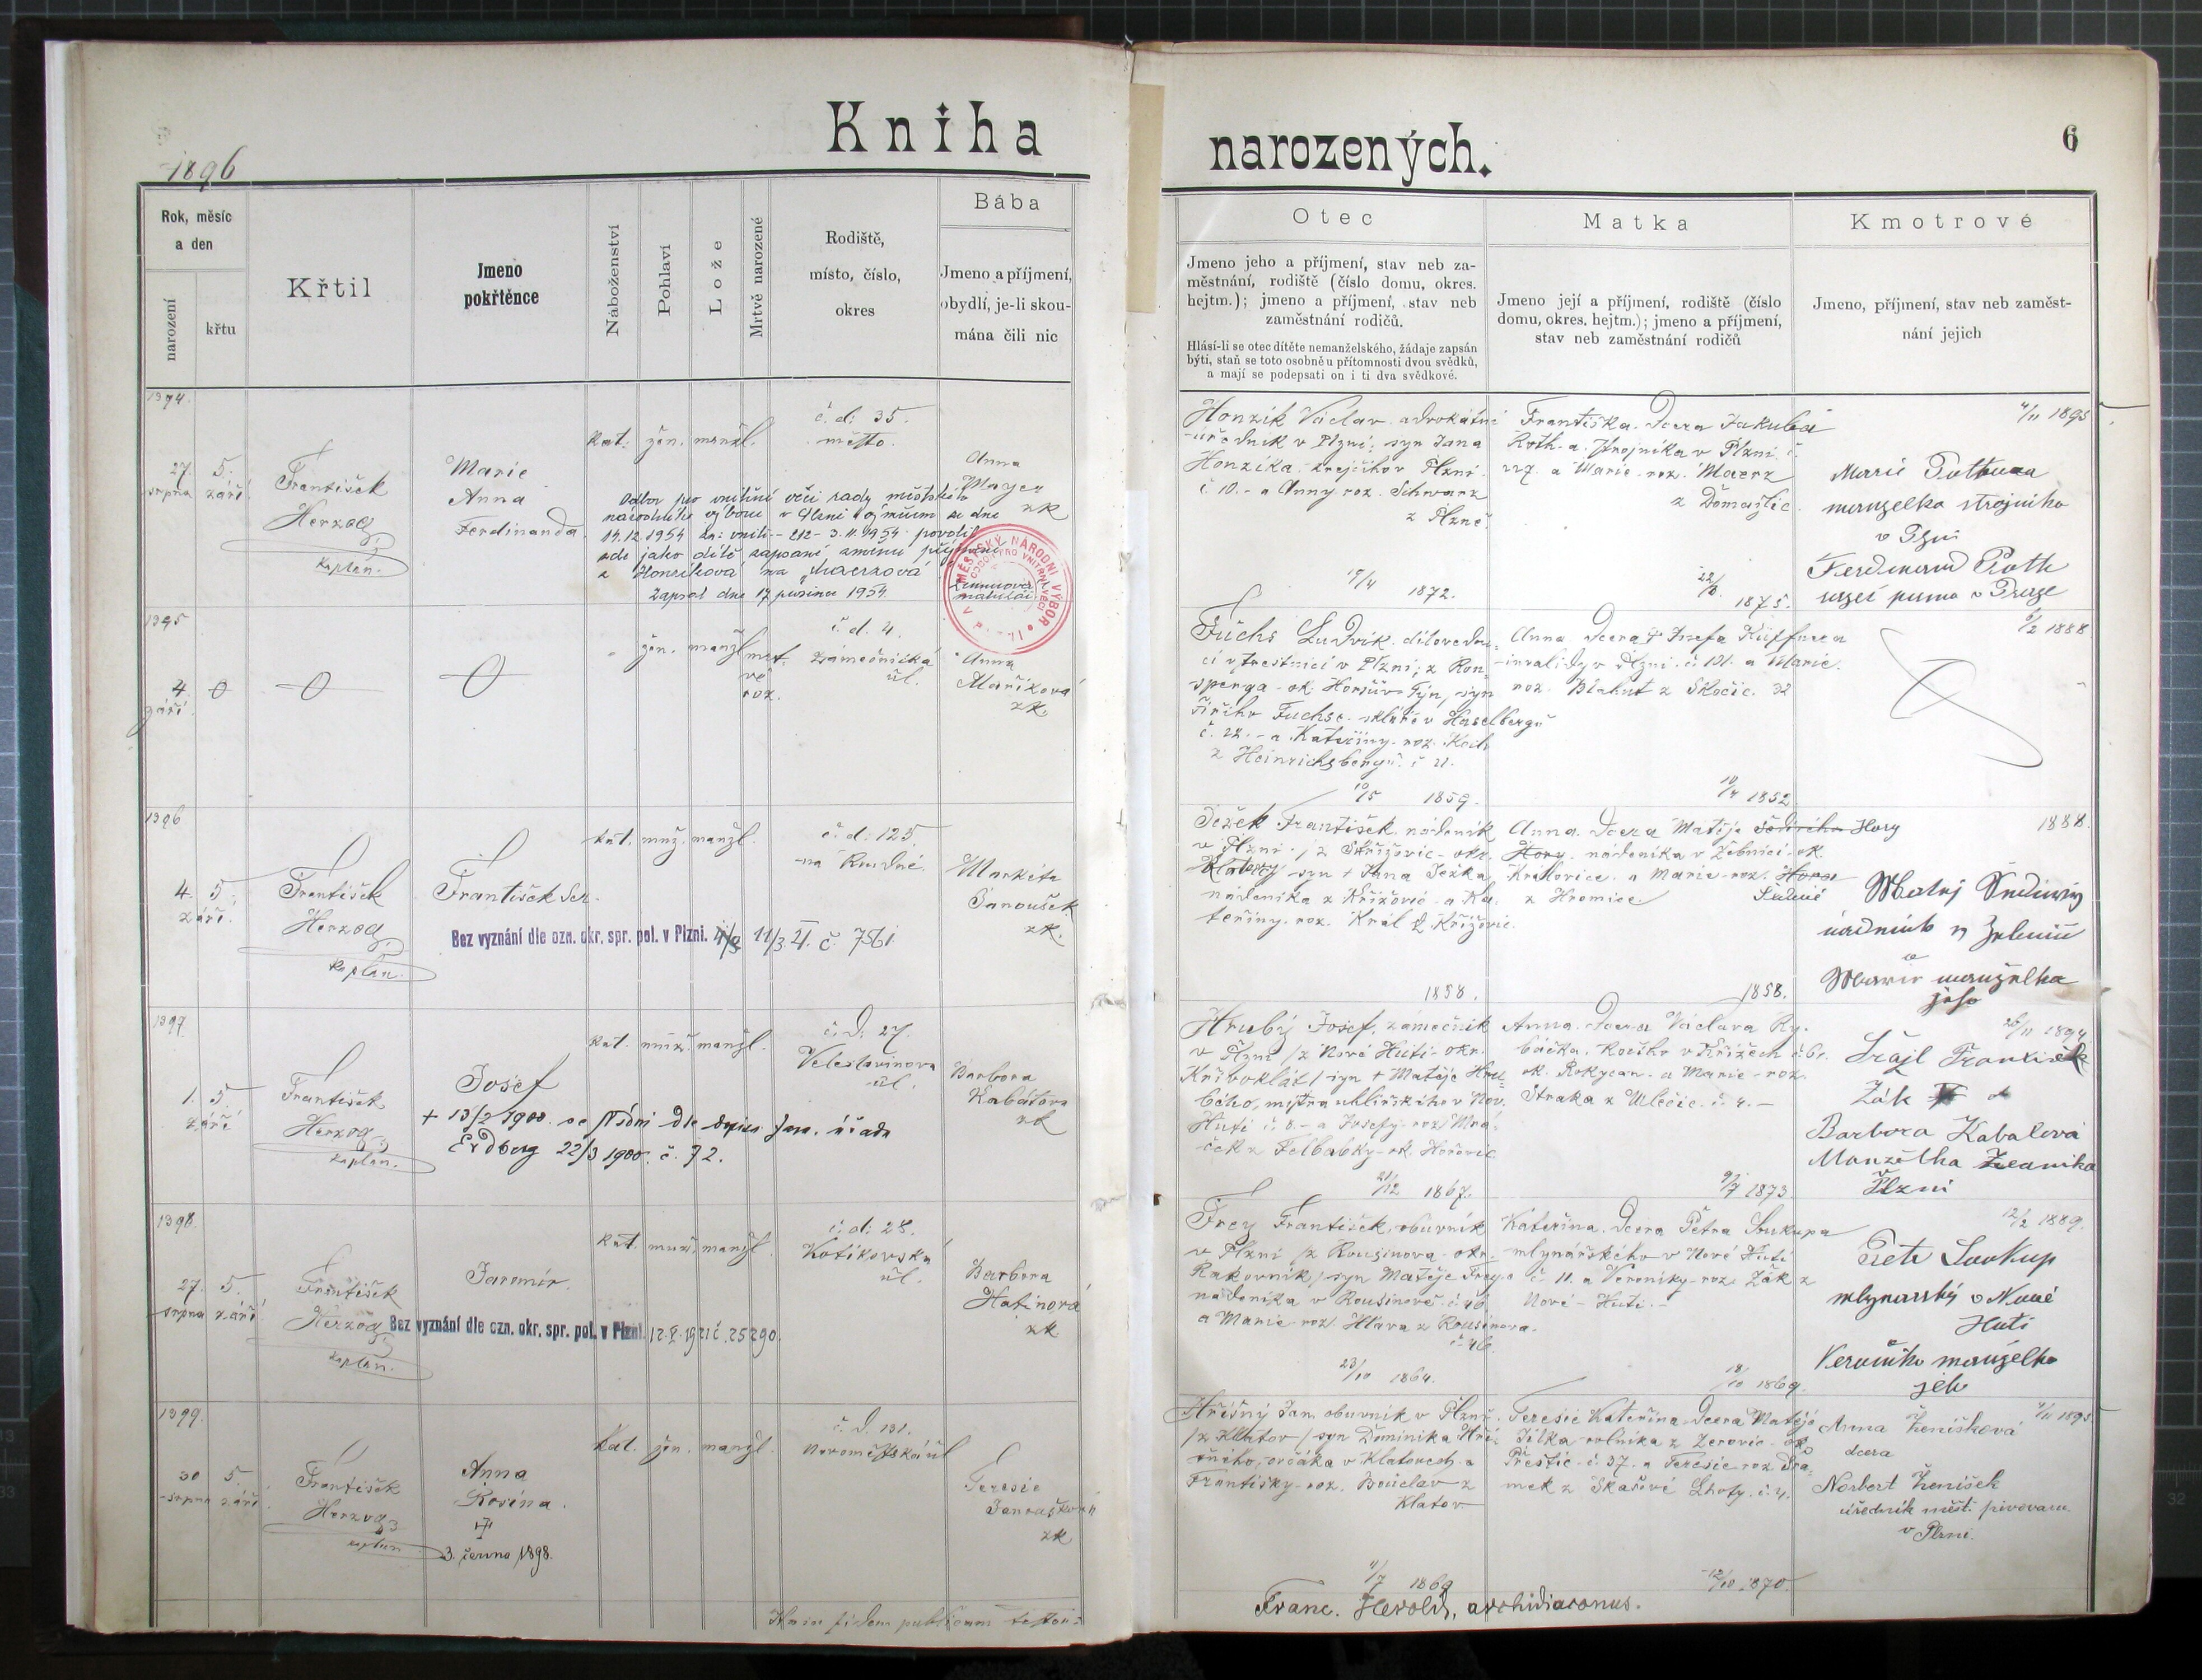 Kniha
narozených.
6
1896
Rok, měsíc
a den
narození
křtu
Křtil
Jmeno
pokřtěnce
Náboženství
Pohlaví
Lože
Mrtvě narozené
Rodiště,
místo, číslo,
okres
Bába
Jmeno a příjmení,
obydlí, je-li skou-
mána čili nic
Otec
Jmeno jeho a příjmení, stav neb za-
městnání, rodiště (číslo domu, okres.
hejtm.); jmeno a příjmení, stav neb
zaměstnání rodičů.
Hlásí-li se otec dítěte nemanželského, žádaje zapsán
býti, staň se toto osobně u přítomnosti dvou svědků,
a mají se podepsati on i ti dva svědkové.
Matka
Jmeno její a příjmení, rodiště (číslo
domu, okres. hejtm.); jmeno a příjmení,
stav neb zaměstnání rodičů
Kmotrové
Jmeno, příjmení, stav neb zaměst-
nání jejich
1394.
27. srpna
5. září
František
Herzog
kaplan.
Marie
Anna
Ferdinanda
kat. žen. manžl.
č. d. 35.
město.
Anna
Mayer
zk
Odbor pro vnitřní věci rady městského
národního výboru v Plzni výměrem ze dne
14.12.1954 zn: vnitř.-212-3.11.1954 povolil
zde jako dítě zapsané změnu příjmení
z Honzíková na
Zapsal dne 17 prosince 1954
MĚSTSKÝ NÁRODNÍ VÝBOR
ODBOR PRO VNITŘNÍ VĚCI
Honzík Václav advokátní
úředník v Plzni, syn Jana
Honzíka krejčího v Plzni
č 10. - a Anny roz. Schwarz
z Plzně.
15/4 1872.
Františka dcera Jakuba
Roth a strojníka v Plzni č.
a Marie roz. Maerz
z Domažlic
1875.
4/11 1895
Marie
manželka strojního
v Plzni
Ferdinand Roth
v Praze
1395
4. září
0
0
0
žen. manžl. mrt-
vě
roz.
č. d. 4.
Zámečnická
ul.
Anna
Maříková
zk.
Fuchs Ludvík dílovedou-
cí v trestnici v Plzni, z Ron-
sperga - ok. Horšův Týn, syn
Jiřího Fuchse sklář v Haselbergu
č. 22. - a Kateřiny roz. Koch
z Heinrichsbergu č 21.
10/5 1859.
Anna dcera + Josefa
invalidy v Plzni č. 131. a Marie
roz. Blahut z Skočic. 32
10/4 1852
2 1888
1396
4. září
5.
František
Herzog
kaplan.
František Ser.
kat. muž. manžl.
č. d. 125.
na Roudné.
Markéta
Janoušek
zk.
Bez vyznání dle ozn. okr. spr. pol. v Plzni. 11/3. 21. č. 7561
Ježek František nádeník
v Plzni / z Křížovic - okr.
Klatovy syn + Jana Ježka
nádeníka z Křížovic - a Ka-
teřiny roz. Král z Křížovic.
1858.
Anna dcera Matěje Hory
Hory nádeníka v Žebnici ok.
Kralovice a Marie roz. Hora
z Hromice.
1858.
1888.
Matěj
nádeník v
a
Marie manželka
jeho
1397
1. září
5.
František
Herzog
kaplan.
Josef
+ 13/2 1900. ve Vídni dle dopisu far. úřadu
Erdberg 22/3 1900. č. 72.
kat. muž. manžl.
č. d. 27.
Veleslavínova
ul.
Barbora
Kabátova
zk
Hrubý Josef, zámečník
v Plzni / z Nové Huti - okr.
Křivoklát / syn + Matěje Hru-
bého, mistra uhlířského v Nov.
Huti č. 8. - a Josefy roz. Mra-
ček z Felbabky ok. Hořovic
21/12 1867.
Anna dcera Václava Ry-
báčka v Křížech č. 61.
ok. Rokycan - a Marie - roz.
Straka z č. 4. -
9/7 1873.
26/11 1894
Šrajl František
Žák a
Barbora Kabatová
Manželka
v Plzni
1398.
27. srpna
5. září
František
Herzog
kaplan.
Jaromír.
kat. muž. manžl.
č. d. 28.
Kotíkovská
ul.
Barbora
Hatinová
zk
Bez vyznání dle ozn. okr. spr. pol. v Plzni. 12. V. 1921 č. 25290
Frey František, obuvník
v Plzni / z Rousínova - okr.
Rakovník / syn Matěje Freye
nádeníka v Rousínově č. 46.
a Marie roz. Hlava z Rousínova.
č. 46.
23/10 1864.
Kateřina dcera Petra Soukupa
mlynářského v Nové Huti
č. 11. a Veroniky roz. Žák z
Nové - Huti. -
18/10 1869.
12/2 1889.
Petr Soukup
mlynarský v Nové
Huti
Veronika manželka
jeho
1399.
30 srpna
5. září
František
Herzog
kaplan
Anna
Rosina.
†
3. června 1898.
kat. žen. manžl.
č. d. 131.
Novoměstská ul
Terezie
zk
Hříšný Jan obuvník v Plzni
/ z Klatov / syn Dominika Hří-
šného, ovčáka v Klatovech a
Františky roz. Bouclav z
Klatov
4/7 1869
Terezie Kateřina dcera Matěje
Jílka rolníka z Zerovic ok.
Přeštic č. 37. a Terezie roz. Dra-
mek z Skašové Lhoty č. 4.
12/10 1870.
4/11 1895
Anna Ženíšková
dcera
Norbert Ženíšek
úředník měšť. pivovaru
v Plzni.
In fidem publicam testor:
Franc. Herold, archidiaconus.